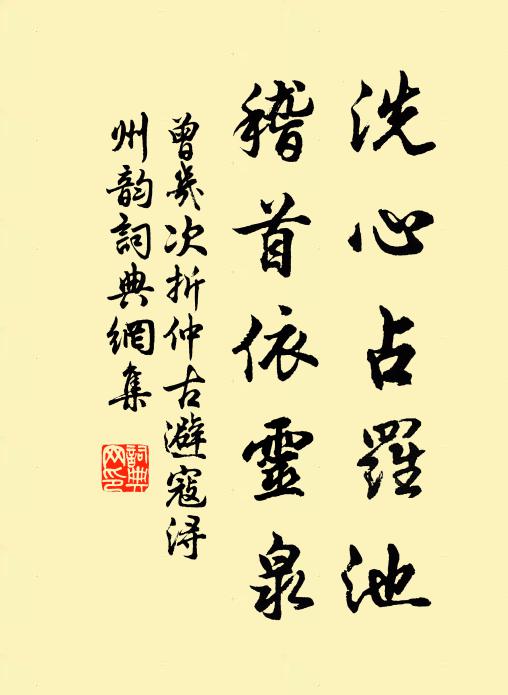 洗心占羅池
稽首依靈泉
曾幾次折仲古避寇浔
州韵詞典網集
詞典網印